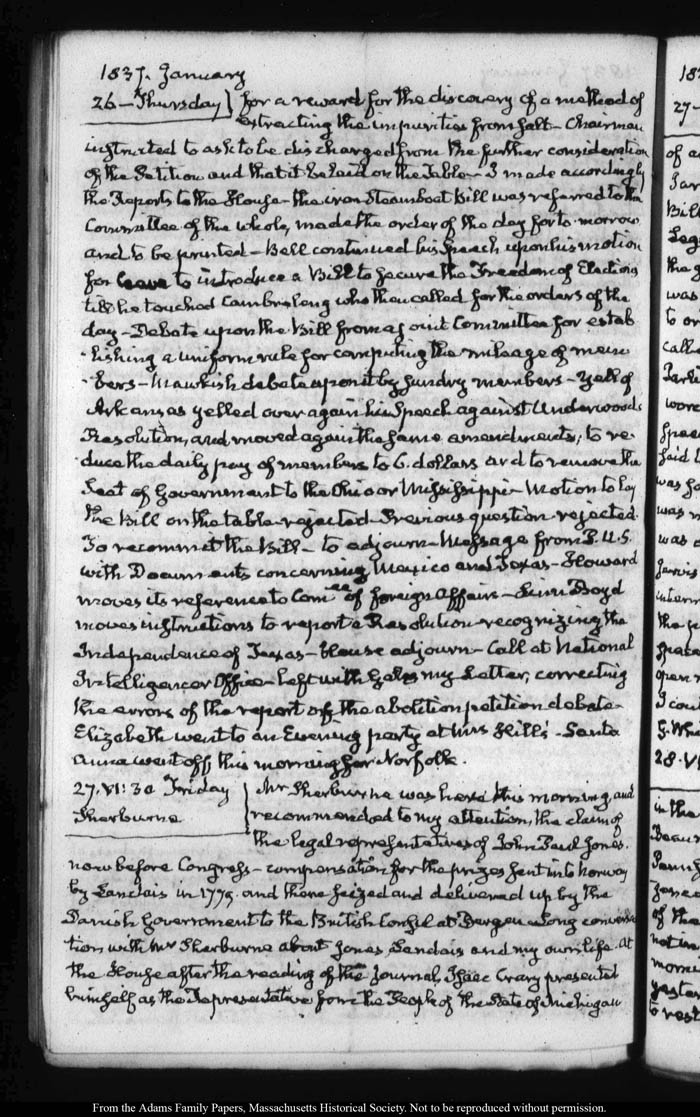 1837. January
26 - Thursday} for a reward for the discovery of a method of
extracting the impurities from salt - Chairman
instructed to ask to be discharged from the further consideration
of the Petition and that it be laid on the Table - I made accordingly
the Reports to the House - the iron Steamboat Bill was referred to the
Committee of the whole, made the order of the day for to-morrow
and to be printed - Bell continued his Speech upon his motion
for leave to introduce a Bill to secure the Freedom of Elections
till he touched Cambreleng who then called for the orders of the
day - Debate upon the Bill from a joint Committee for estab
lishing a uniform rule for computing the mileage of mem
bers - Mawkish debate upon it by sundry members - Yell of
Arkansas yelled over again his Speech against Underwood's
Resolution, and moved again the same amendments; to re
duce the daily pay of members to 6. dollars and to remove the
Seat of Government to the Ohio or Mississippi - Motion to lay
the Bill on the table rejected - Previous question rejected.
To recommit the Bill - to adjourn - Message from P. U.S.
with Documents concerning Mexico and Texas - Howard
moves its reference to Comee. of foreign Affairs - Linn Boyd
moves instructions to report a Resolution recognizing the
Independence of Texas - House adjourn - Call at National
Intelligencer Office - left with Gales my Letter, correcting
the errors of the report of the abolition petition debate -
Elizabeth went to an Evening party at Mrs Hill's - Santa
Anna went off this morning for Norfolk.
27. VI: 30 Friday } Mr Sherburne was here this morning, and
Sherburne recommended to my attention, the claim of
the legal representatives of John Paul Jones.
now before Congress - compensation for the prizes sent into Norway
by Landais in 1779. and there seized and delivered up by the
Danish Government to the British Consul at Bergen - Long conversa
tion with Mr Sherburne about Jones, Landais and my own life. At
the House after the reading of the Journal, Isaac Crary presented
himself as the Representative from the People of the State of Michigan
183
27-
of a
Bill
Leg
the
was
to or
call
word
said
was
was
was
the
open
I cou
28. VI
in the
of the
not in
yester
to rest
From the Adams Family Papers, Massachusetts Historical Society. Not to be reproduced without permission.